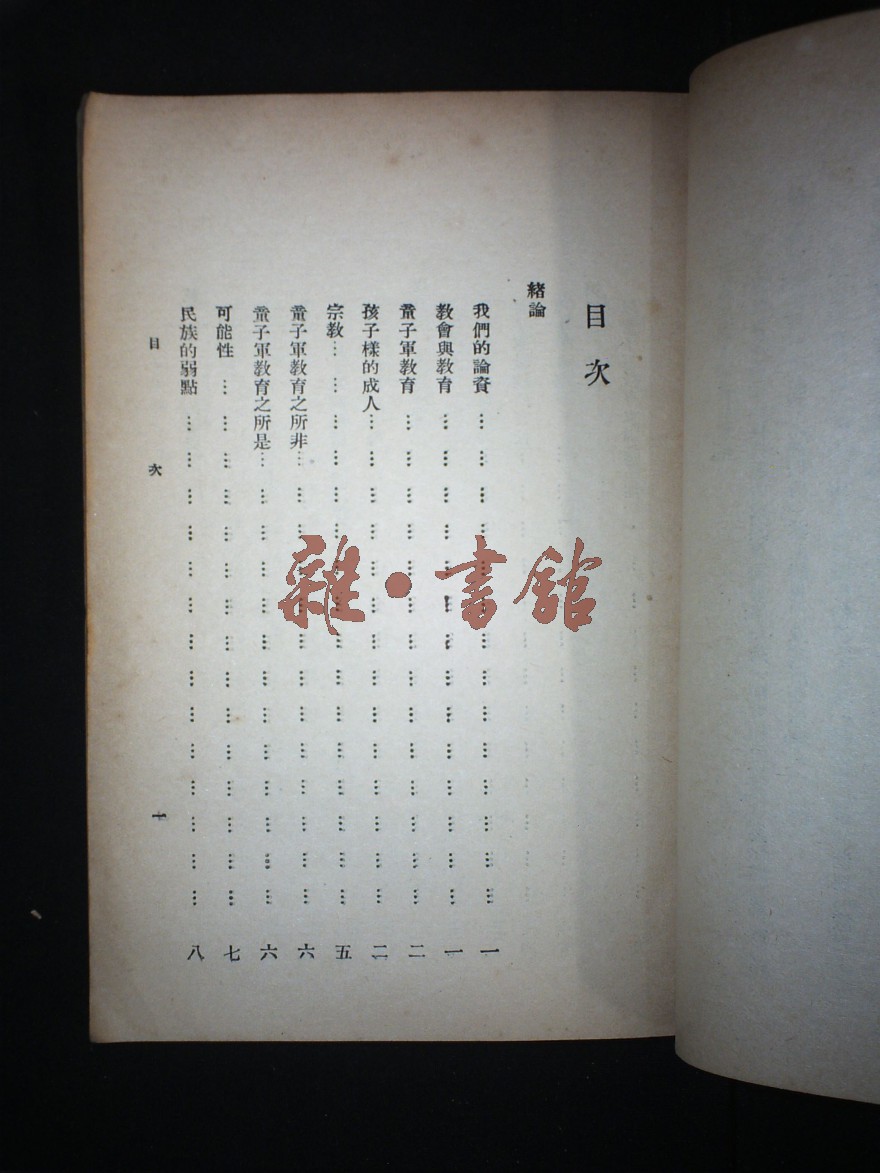 目次
緒論
我們的論資 … … … … … … … … … … … … … … 一
教會與教育 … … … … … … … … … … … … … … 一
童子軍教育 … … … … … … … … … … … … … … 二
孩子樣的成人 … … … … … … … … … … … … … … 二
宗教 … … … … … … … … … … … … … … … … 五
童子軍教育之所非 … … … … … … … … … … … … … 六
童子軍教育之所是 … … … … … … … … … … … … … 六
可能性 … … … … … … … … … … … … … … … 七
民族的弱點 … … … … … … … … … … … … … … 八
目次 一
雜·書館